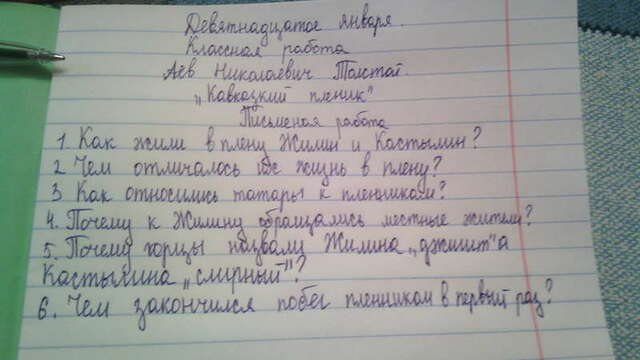 Девятнадцатое января.
Классная работа
Лев Николаевич Толстой.
„Кавказкий пленик"
Письменая работа
1. Как жили в плену Жилин и Костылин?
2 Чем отличалось их жизнь в плену?
3 Как относились татары к пленникам?
4. Почему к Жилину обращались местные жители?
5. Почему горцы назвали Жилина „джигит" а
Костылина „смирный"?
6. Чем закончился побег пленником в первый раз?